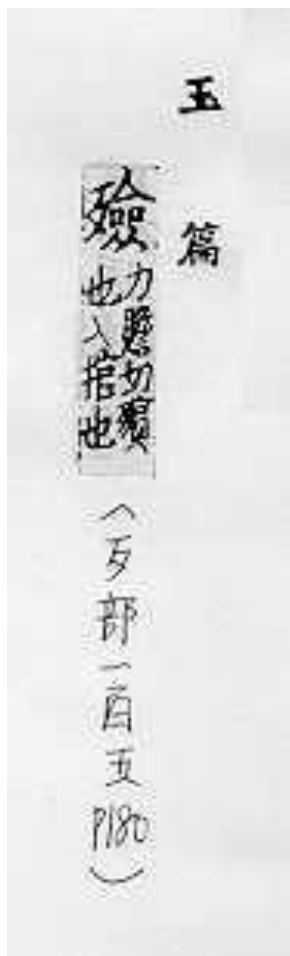 玉篇
殮
力贍切殯
也入棺也
(歹部一百五 P180)